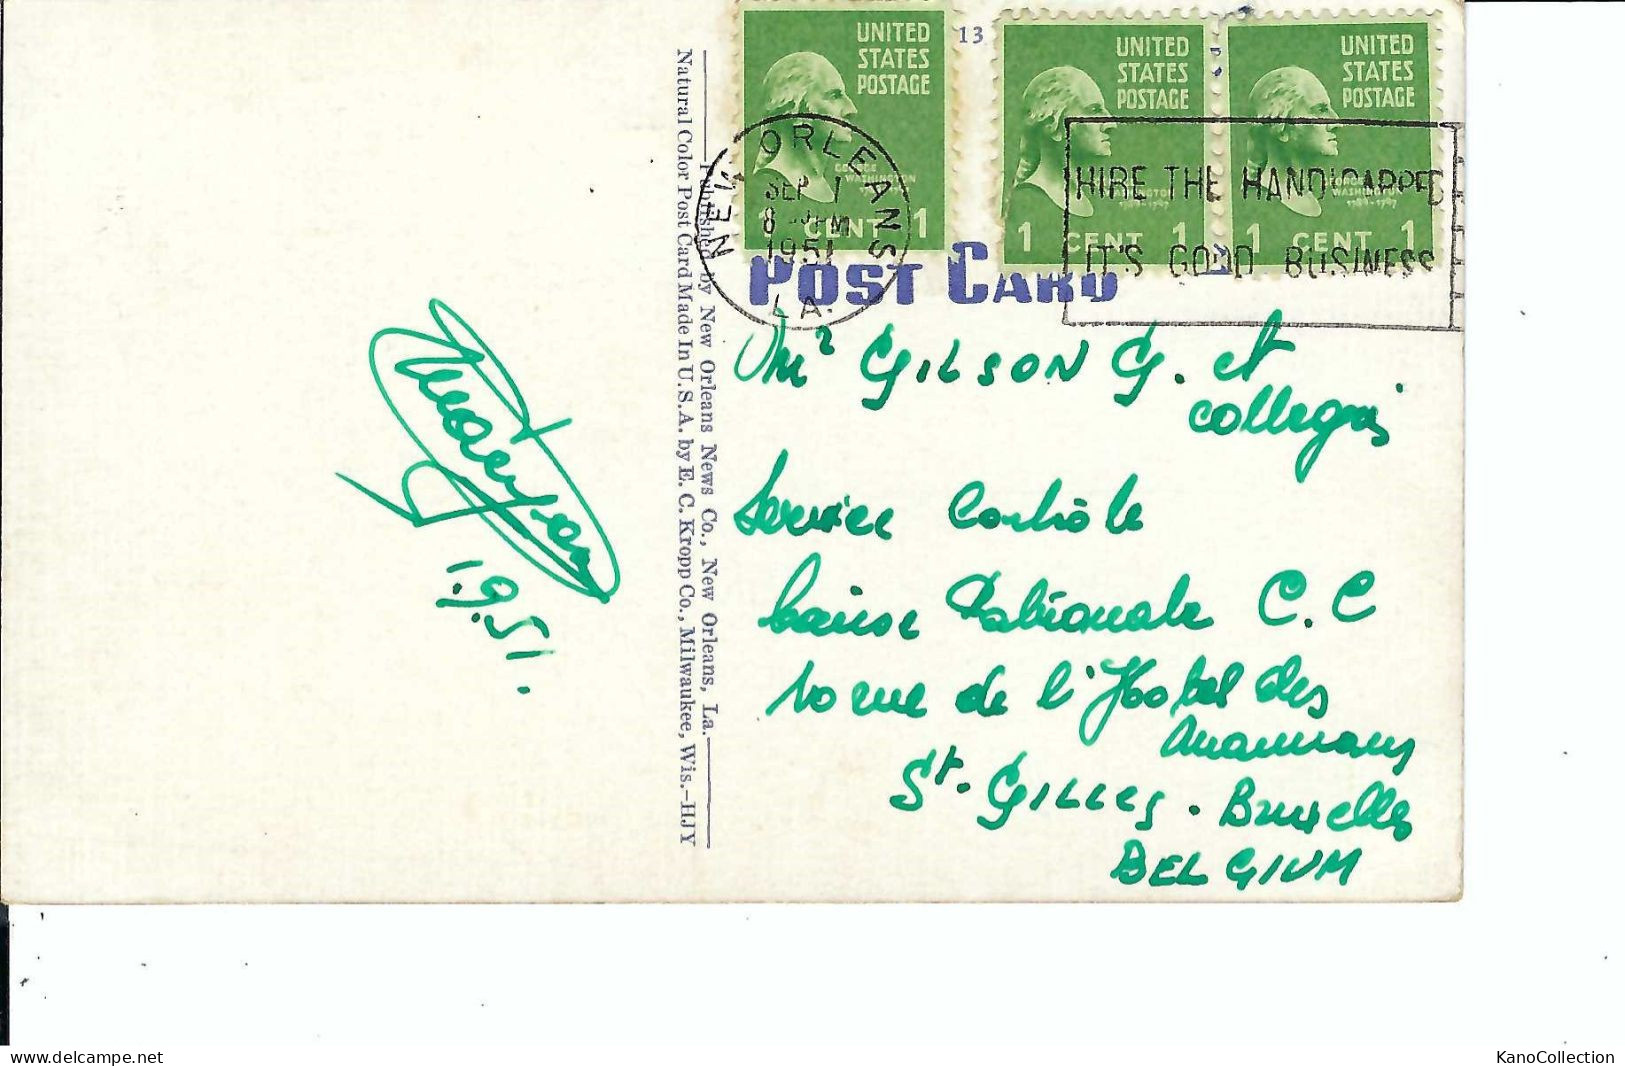 UNITED
STATES
POSTAGE
GEORGE
WASHINGTON
1 CENT 1
13
UNITED
STATES
POSTAGE
1 CENT 1
UNITED
STATES
POSTAGE
WASHINGTON
1789-1797
1 CENT 1
NEW ORLEANS
SEP 1
8 PM
1951
LA.
HIRE THE HANDICAPPED
IT'S GOOD BUSINESS
POST CARD
Published by New Orleans News Co., New Orleans, La.
Natural Color Post Card Made In U.S.A. by E. C. Kropp Co., Milwaukee, Wis.-HJY
1.9.51.
Mr GILSON G. et
Service Contrôle
Caisse Nationale C.C
10 rue de l'Hotel des
Monnaies
St. GILLES. Bruxelles
BELGIUM
www.delcampe.net
KanoCollection